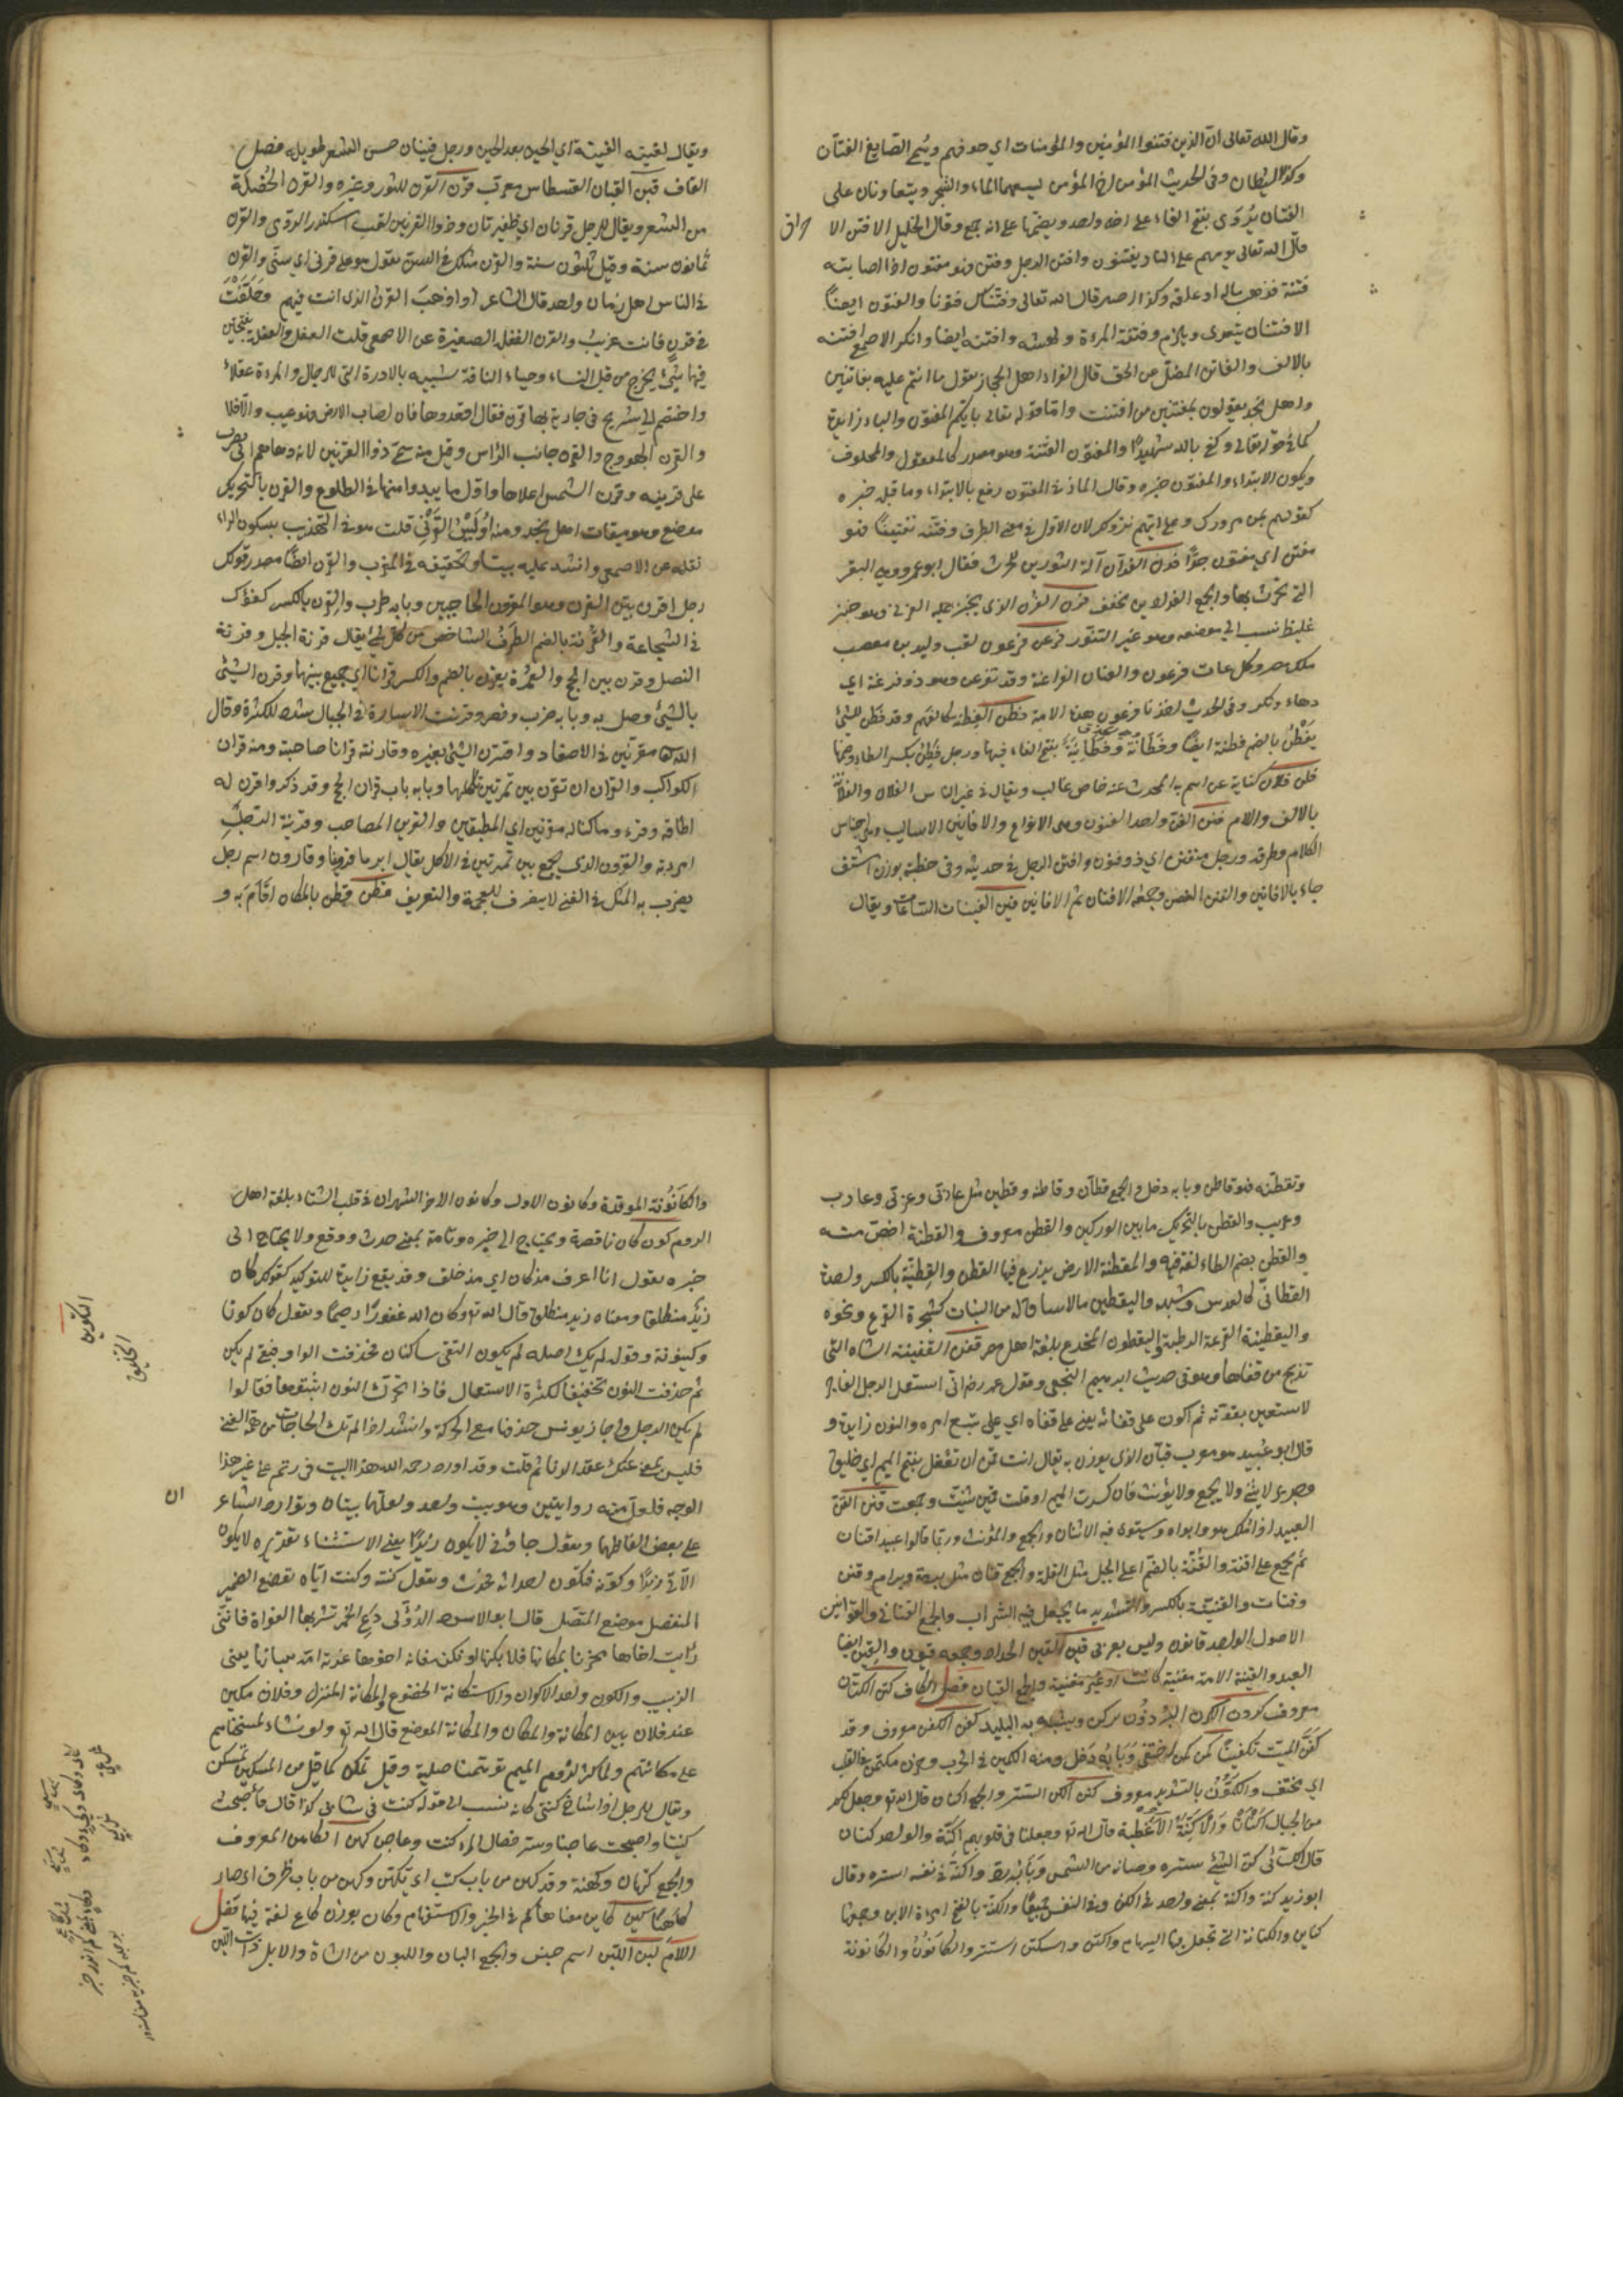 وقال الله تعالى ان الذين فتنوا المؤمنين والمؤمنات اي حرقوهم ويسمى الصايغ الفتان
وكذا الشيطان وفى الحديث المؤمن اخ المؤمن يسعهما الماء والشجر ويتعاونان على
الفتان يروى بفتح الفاء على انه واحد وبضمها على انه جمع وقال الخليل الافتن الا
حراق
قال الله تعالى يوم هم على النار يفتنون وافتتن الرجل وفتن فهو مفتون اذا اصابته
فتنة فذهب ماله او عقله وكذا اختبر قال الله تعالى وفتناك فتونا والفتون ايضا
الافتتان يتعدى ويلزم وفتنته المراة ولهته وافتنته ايضا وانكر الاصمعي افتنته
بالالف والفاتن المضل عن الحق قال الفراء اهل الحجاز يقول ما انتم عليه بفاتنين
واهل نجد يقولون بمفتنين من افتنت واما قوله تعالى بايكم المفتون والباء زايدة
كما في قوله تعالى وكفى بالله شهيدا والمفتون الفتنة وهو مصدر كالمعقول والمحلوف
ويكون الابتداء والمفتون خبره وقال المازني المفتون رفع بالابتداء وما قبله خبره
كقولهم بمن مرورك وعلى ايهم نزولك لان الاول في معنى الظرف وفتنه تفتينا فهو
مفتن اي مفتون جدا فدن الفدان آلة الثورين للحرث وقال ابو عمرو هي البقر
التي تحرث بها والجمع الفدادين مخفف فرن الفرن الذي يخبز عليه الفرني وهو خبز
غليظ نسب الى موضعه وهو غير التنور فرعن فرعون لقب وليد بن مصعب
ملك مصر وكل عات فرعون والعتات الفراعنة وقد تفرعن وهو ذو فرعنة اي
دهاء ونكر وفى الحديث اخذنا فرعون هذه الامة فطن الفطنة كالفهم وقد فطن للشئ
يفطن بالضم فطنة ايضا وفطانة وفطانية بفتح الفاء فيهما ورجل فطن بكسر الطاء وضمها
فلن فلان كناية عن اسم سمى به المحدث عنه خاص غالب ويقال في غير الناس الفلان والفلانة
بالالف واللام فنن الفن واحد الفنون وهي الانواع والافانين الاساليب وهي اجناس
الكلام وطرقه ورجل متفنن اي ذو فنون وافتن الرجل في حديثه وفى خطبته بوزن اشتق
جاء بالافانين والفنن الغصن وجمعه الافنان ثم الافانين فين الفينات الساعات ويقال
ويقال لقيته الفينة اي الحين بعد الحين ورجل فينان حسن الشعر طويله فصل
القاف قبن القبان القسطاس معرب قرن القرن للثور وغيره والقرن الخصلة
من الشعر ويقال للرجل قرنان اي ظفيرتان وذوا القرنين لقب اسكندر الرومي والقرن
ثمانون سنة وقيل ثلثون سنة والقرن مثلك في السن تقول هو على قرني اي سني والقرن
في الناس اهل زمان واحد قال الشاعر اذا ذهب القرن الذي انت فيهم وخلفت
في قرن فانت غريب والقرن العفلة الصغيرة عن الاصمعي قلت العفل والعفلة بفتحتين
فيهما شئ يخرج من قبل النساء وحياء الناقة شبيه بالادرة التي للرجال والمراة عفلاء
واختصم الى شريح في جارية بها قرن فقال اقعدوها فان اصاب الارض فهو عيب والا فلا
والقرن الهودج والقرن جانب الراس وقيل منه سمي ذوا القرنين لانه دعاهم الى الله فضرب
على قرنيه وقرن الشمس اعلاها واول ما يبدوا منها في الطلوع والقرن بالتحريك
موضع وهو ميقات اهل نجد ومنه اويس القرني قلت هو في التهذيب بسكون الراء
نقله عن الاصمعي وانشد عليه بيتا وتحقيقه في المغرب والقرن ايضا مصدر قولك
رجل اقرن بين القرن وهو المقرون الحاجبين وبابه طرب والقرن بالكسر كفؤك
في الشجاعة والقرنة بالضم الطرف الشاخص من كل شئ يقال قرنة الجبل وقرنة
النصل وقرن بين الحج والعمرة يقرن بالضم والكسر قرانا اي جمع بينهما وقرن الشئ
بالشئ وصل به وبابه ضرب ونصر وقرنت الاسارى في الحبال شدد للكثرة وقال
الله تعالى مقرنين في الاصفاد واقترن الشئ بغيره وقارنته قرانا صاحبته ومنه قران
الكواكب والقران ان تقرن بين تمرتين تاكلهما وبابه باب قران الحج وقد ذكر واقرن له
اطاقه وقوله وما كنا له مقرنين اي مطيقين والقرين المصاحب وقرينة الرجل
امراته والقرون الذي يجمع بين تمرتين في الاكل يقال ابرما قرونا وقارون اسم رجل
يضرب به المثل في الغنى لا ينصرف للعجمة والتعريف قطن قطن بالمكان اقام به و
وتقطنه فهو قاطن وبابه دخل والجمع قطان وقاطنة وقطين مثل غازي وغزي وعازب
وعزيب والقطن بالتحريك ما بين الوركين والقطن معروف والقطنة اخص منه
والقطن بضم الطاء لغة فيه والمقطنة الارض يزرع فيها القطن والقطنية بالكسر واحدة
القطاني كالعدس وشبهه واليقطين ما لا ساق له من النبات كشجرة القرع ونحوه
واليقطينة القرعة الرطبة واليقطون المخدع بلغة اهل مصر قفن القفينة الشاة التي
تذبح من قفاها وهو في حديث ابراهيم النخعي وقول عمر رض اني استعمل الرجل الفاجر
لاستعين بقوته ثم اكون على قفانه يعني على قفاه اي على تتبع امره والنون زايدة و
قال ابو عبيد هو معرب قبان الذي يوزن به يقال انت قمن ان تفعل بفتح الميم اي خليق
وجدير لا يثنى ولا يجمع ولا يؤنث فان كسرت الميم او قلت قمين ثنيت وجمعت قنن القن
العبيد اذا ملك هو وابواه ويستوي فيه الاثنان والجمع والمؤنث وربما قالوا عبيد اقنان
ثم يجمع على اقنة والقنة بالضم اعلى الجبل مثل القلة والجمع قنان مثل برمة وبرام وقنن
وقنات والقنينة بالكسر والتشديد ما يجعل فيه الشراب والجمع القناني والقوانين
الاصول الواحد قانون وليس بعربي قين القين الحداد وجمعه قيون والقين ايضا
العبد والقينة الامة مغنية كانت او غير مغنية والجمع القيان فصل الكاف كتن الكتان
معروف كردن الكودن البرذون يركن ويشبه به البليد كفن الكفن معروف وقد
كفن الميت تكفينا كمن كمن اختفى وبابه دخل ومنه الكمين في الحرب وحزن مكتمن في القلب
اي مختف والكمون بالتشديد معروف كنن الكن السترة والجمع اكنان قال الله تع وجعل لكم
من الجبال اكنانا والاكنة الاغطية قال الله تع وجعلنا في قلوبهم اكنة والواحد كنان
قال الكسائي كن الشئ ستره وصانه من الشمس وبابه رد واكنه في نفسه استره وقال
ابو زيد كنه واكنه بمعنى واحد في الكن وفي النفس جميعا والكنة بالفتح امراة الابن وجمعها
كناين والكنانة التي تجعل فيها السهام واكتن واستكن استتر والكانون والكانونة
والكانونة الموقدة وكانون الاول وكانون الاخر الشهران في قلب الشتاء بلغة اهل
الروم كون كان ناقصة ويحتاج الى خبره وتامة بمعنى حدث ووقع ولا يحتاج الى
خبره يقول انا اعرف مذ كان اي مذ خلق وقد يقع زايدة للتوكيد كقولك كان
زيد منطلقا ومعناه زيد منطلق قال الله تع وكان الله غفورا رحيما وتقول كان كونا
وكينونة وقوله لم يك اصله لم يكون التقى ساكنان فحذفت الواو فبقي لم يكن
ثم حذفت النون تخفيفا لكثرة الاستعمال فاذا تحركت النون اثبتوها فقالوا
لم يكن الرجل واجاز يونس حذفها مع الحركة وانشد اذا لم تك الحاجات من همة الفتى
فليس بمغن عنك عقد الرتائم قلت وقد اورد رحمه الله هذا البيت في رتم على غير هذا
الوجه فلعل منه روايتين وهو بيت واحد ولعلهما بيتان وتوارد الشاعر
ان
على بعض الفاظهما وتقول جاؤني لا يكون زيدا يعني الاستثناء تقديره لا يكون
الآتي زيدا وكونه فتكون احداثه فحدث وتقول كنته وكنت اياه تضع الضمير
المنفصل موضع المتصل قال ابو الاسود الدؤلي دع الخمر تشربها الغواة فانني
رايت اخاها مجزيا بمكانها فلا يكنها او تكنه فانه اخوها غذته امه بلبانها يعني
الزبيب والكون واحد الاكوان والاستكانة الخضوع والمكانة المنزلة وفلان مكين
عند فلان بين المكانة والمكان والمكانة الموضع قال الله تع ولو نشاء لمسخناهم
على مكانتهم ولما كثر لزوم الميم توهمت اصلية وقيل تمكن كما قيل من المسكين تمسكن
ويقال للرجل اذا شاخ كنتي كانه نسب الى قوله كنت في شبابي كذا قال فاصبحت
كنتيا واصبحت عاجنا وشر خصال المرء كنت وعاجن كهن الكاهن المعروف
والجمع كهان وكهنة وقد كهن من باب كتب اي تكهن وكهن من باب ظرف اي صار
كاهنا كين كاين معناها كم في الخبر والاستفهام وكان بوزن كاع لغة فيها فصل
اللام لبن اللبن اسم جنس والجمع البان واللبون من الشاة والابل ذات اللبن
التكوين
التخليق